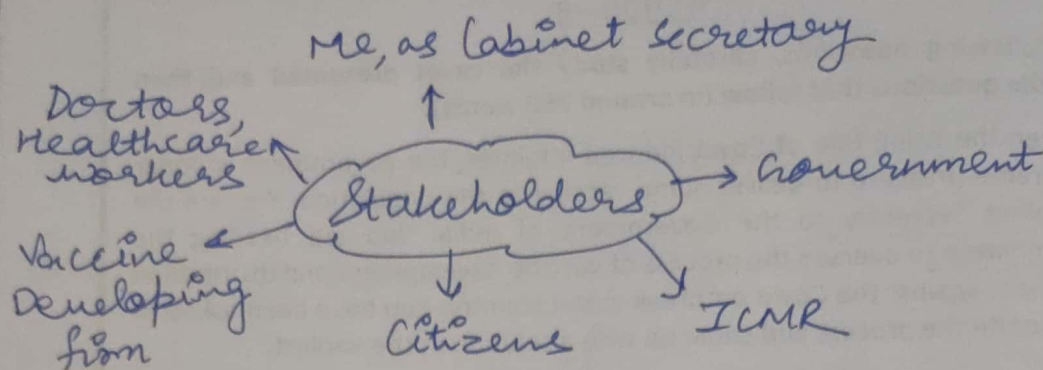 Me, as Cabinet Secretary
Doctors,
Healthcare
workers
Government
Stakeholders
Vaccine
Developing
firm
Citizens
ICMR